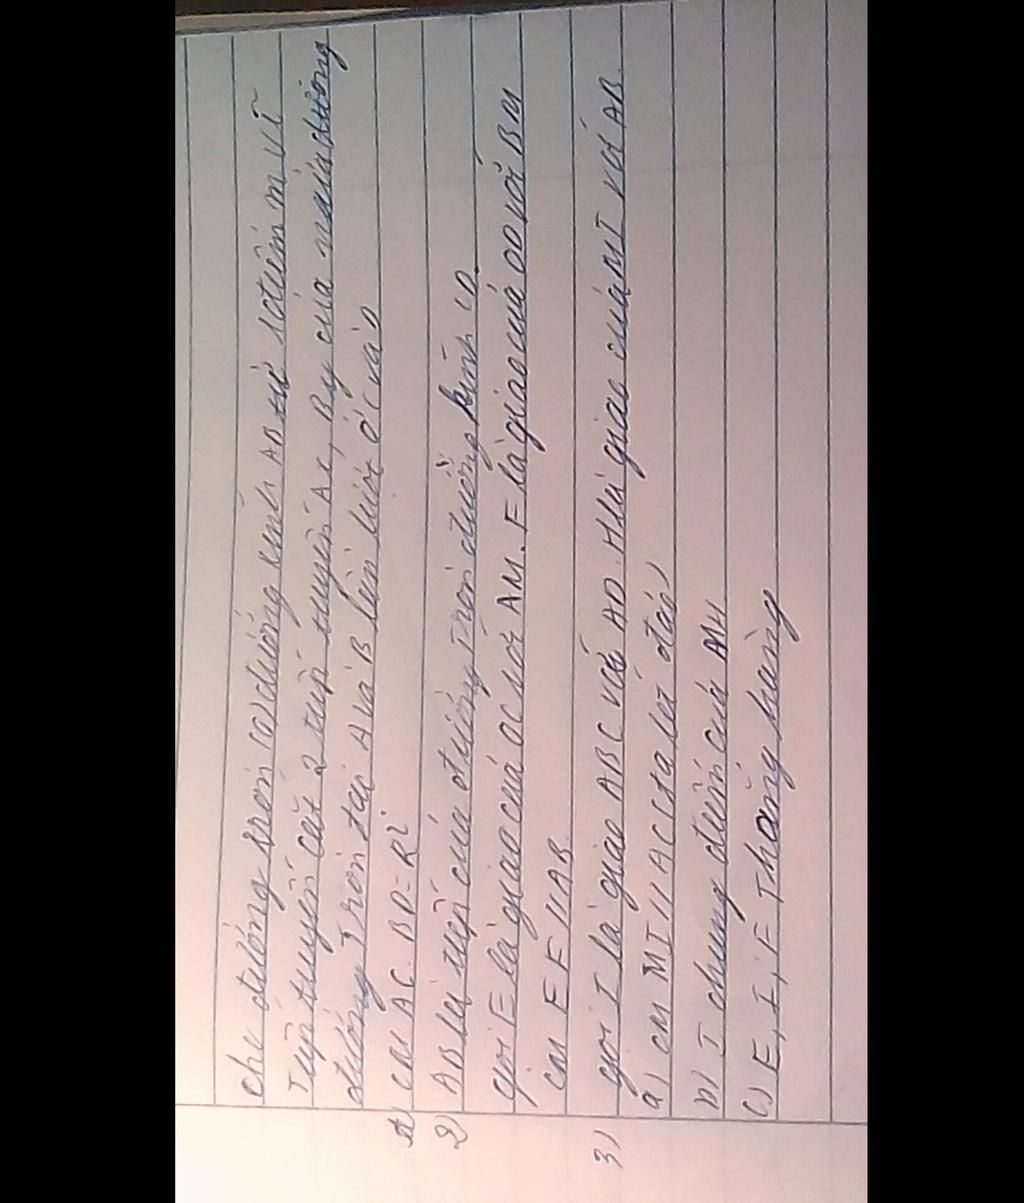 cho đường tròn (O) đường kính AB từ 1 điểm M vẽ
Tiếp tuyến cắt 2 tiếp tuyến Ax, By của nửa đường
đường Tròn tại A và B lần lượt ở C và D
1) CM AC. BD = R²
2) AB là tiếp của đường Tròn đường kính CD.
gọi E là giao của OC với AM. F là giao của OD với BM
CM EF // AB.
3) gọi I là giao BC và AD. H là giao của MI với AB.
a) CM MI // AC (ta lét đảo)
b) I chung điểm của MH
c) E, I, F Thẳng hàng